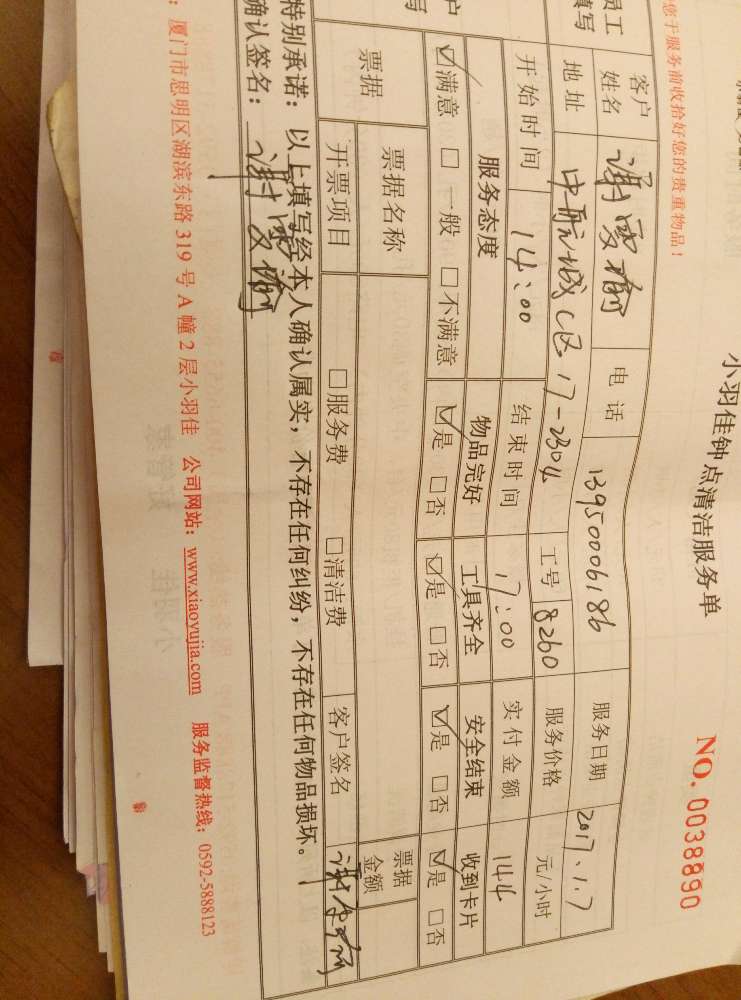 小羽佳钟点清洁服务单
NO. 0038890
您于服务前收拾好您的贵重物品！
员工
填写
客户
姓名
电 话 13950006186 服务日期 2017.1.7
地址 中航城C区17-2304 工号 8260 服务价格 元/小时
开始时间 14:00 结束时间 17:00 实付金额 144
户
写
服务态度 物品完好 工具齐全 安全结束 收到卡片
☑满意 □ 一般 □ 不满意 ☑是 □否 ☑是 □否 ☑是 □否 ☑是 □否
票据 票据名称 票据
金额
开票项目 □服务费 □清洁费 客户签名
特别承诺：以上填写经本人确认属实，不存在任何纠纷，不存在任何物品损坏。
确认签名：
：厦门市思明区湖滨东路 319 号 A 幢 2 层小羽佳 公司网站：www.xiaoyujia.com 服务监督热线：0592-5888123